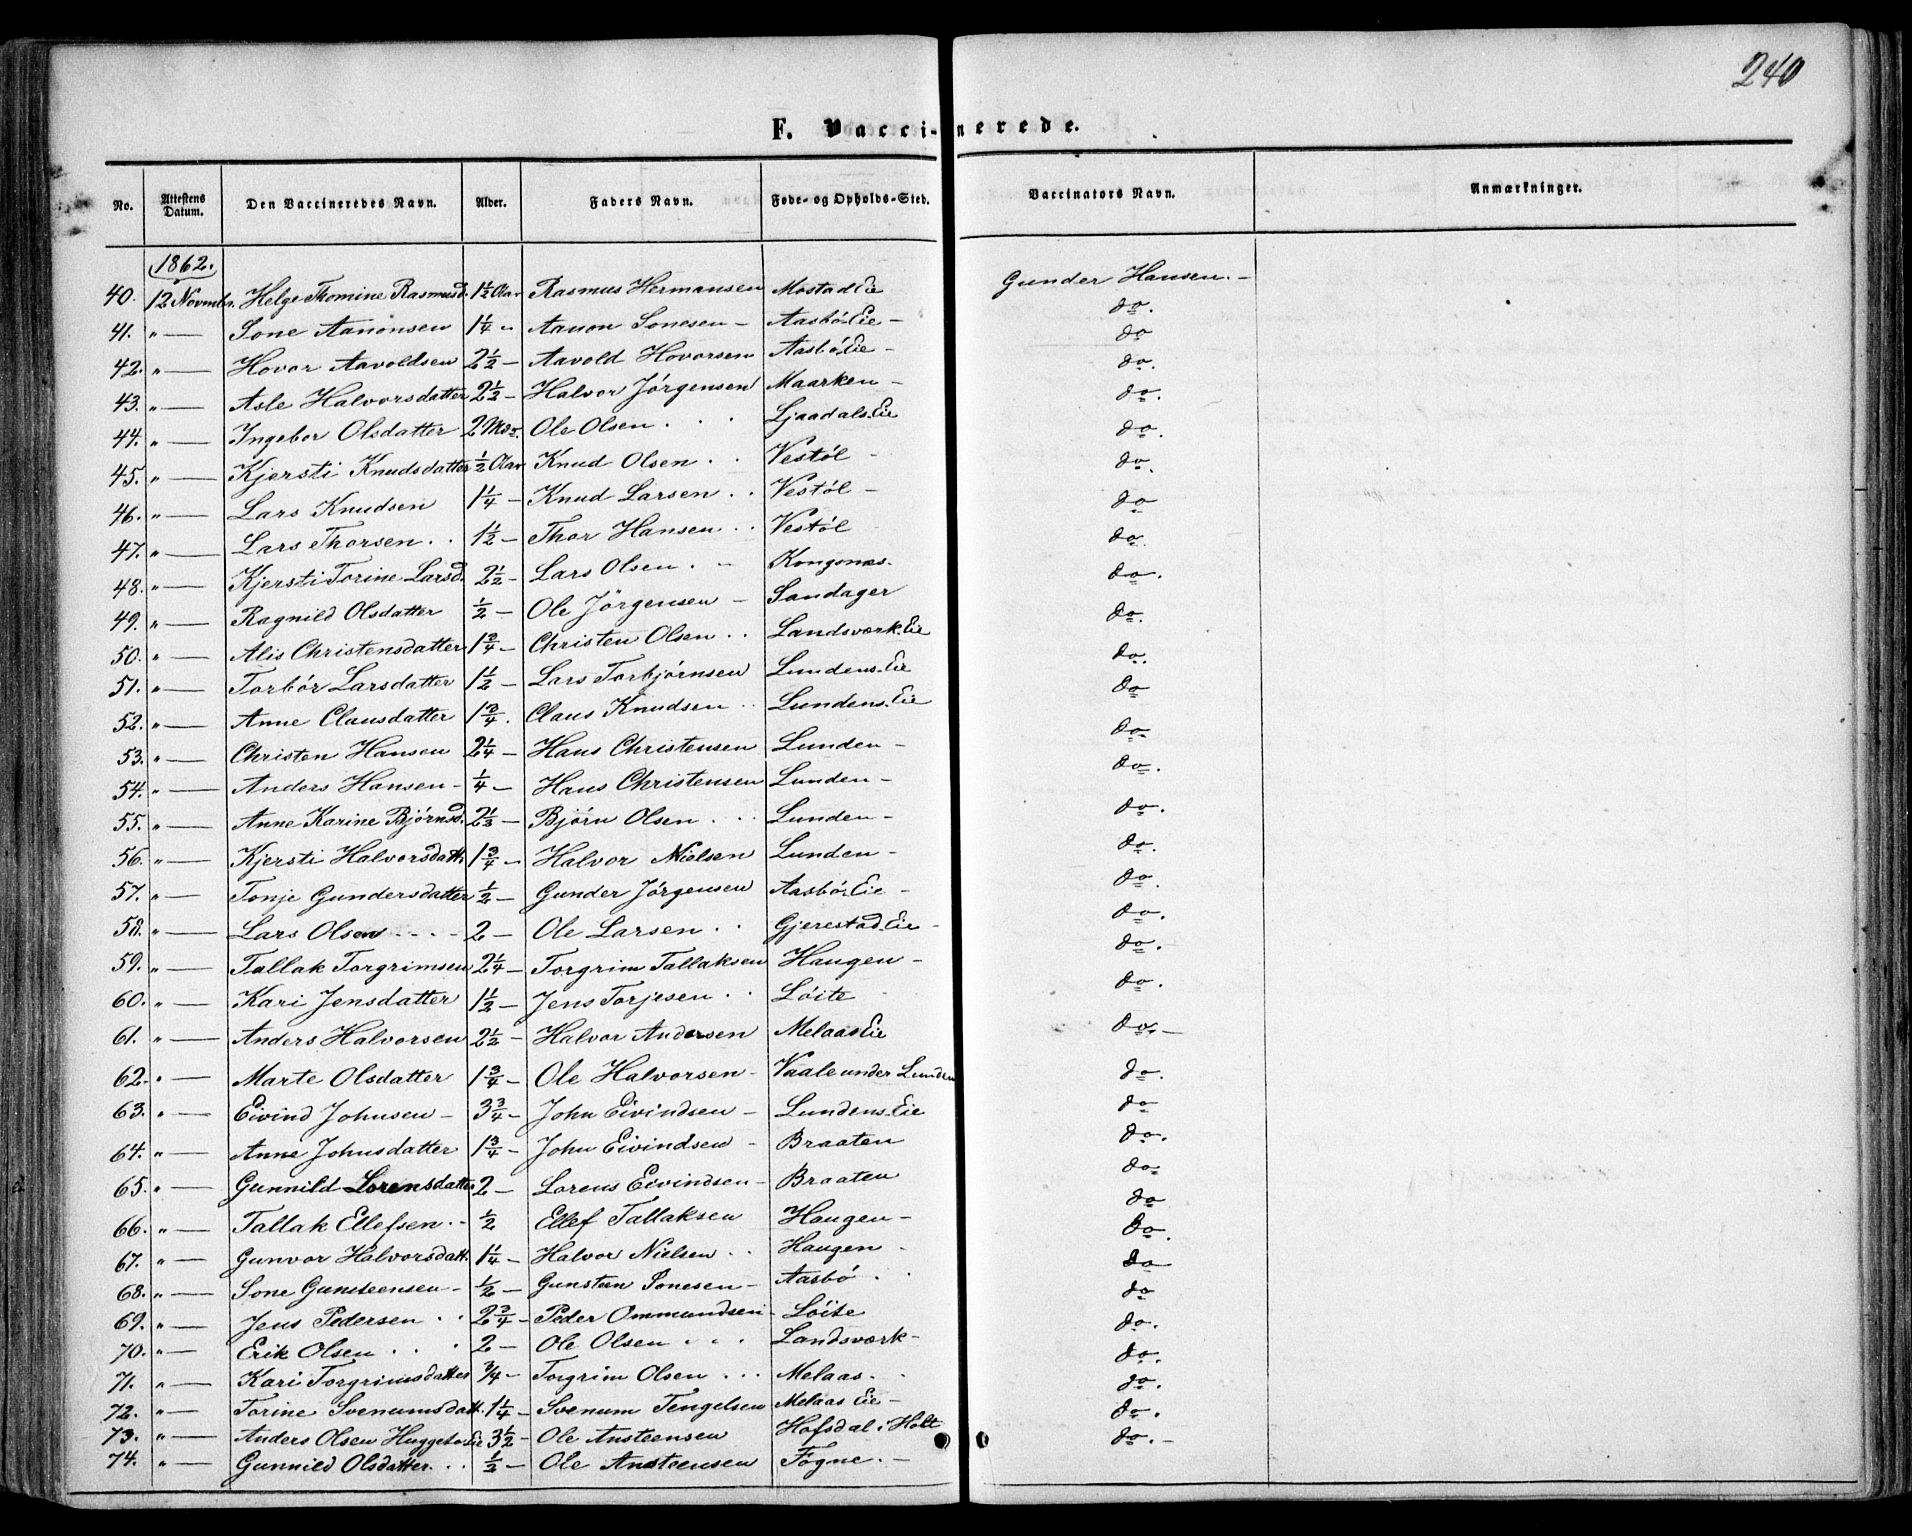 240
F. Vaccinerede.
No. Attestens Datum. Den Vaccineredes Navn. Alder. Faders Navn. Føde- og Opholds-Sted. Vaccinators Navn. Anmærkninger.
1862.
40. 12 Novmbr. Helge Thomine Rasmusd. 1½ Aar Rasmus Hermansen Mostad Eie Gunder Hansen. –
41. " — Sone Aanonsen 1¼ " Aanon Sonesen – Aasbø Eie – do.
42. " — Hovor Aavoldsen 2½ – Aavold Hovorsen Aasbø Eie – do
43. " — Asle Halvorsdatter 2½ – Halvor Jørgensen Maarken – do.
44. " — Ingebor Olsdatter 2 Mdr. Ole Olsen . . Ljaadals Eie do.
45. " — Kjersti Knudsdatter ½ Aar Knud Olsen . . Vestøl – do.
46. " — Lars Knudsen 1¼ – Knud Larsen . . Vestøl – do.
47. " — Lars Thorsen . . 1½ – Thor Hansen . . Vestøl do
48. " — Kjersti Torine Larsd. 2½ – Lars Olsen . – Kongsnæs. do.
49. " — Ragnild Olsdatter ½ – Ole Jørgensen – Sandager do.
50. " — Alis Christensdatter 1¾ – Christen Olsen . . Landsværk Eie do.
51. " — Torbør Larsdatter 1½ – Lars Torbjørnsen Lundens Eie do.
52. " — Anne Clausdatter 1¾ . Claus Knudsen . . Lundens Eie do
53. " — Christen Hansen 2¼ – Hans Christensen Lunden – do.
54. " — Anders Hansen – ¼ – Hans Christensen Lunden – do.
55. " — Anne Karine Bjørnsd. 2⅓ – Bjørn Olsen . . . Lunden – do.
56. " — Kjersti Halvorsdatt. 1¾ – Halvor Nielsen Lunden – do.
57. " — Tonje Gundersdatter ½ – Gunder Jørgensen Aasbø Eie – do.
58. " — Lars Olsen . . . – 2 – Ole Larsen . . Gjerestad Eie – do.
59. " — Tallak Torgrimsen 2¼ – Torgrim Tallaksen Haugen – do.
60. " — Kari Jensdatter 1½ – Jens Torjesen . . Løite do.
61. " — Anders Halvorsen 2½ – Halvor Andersen Melaas Eie do. –
62. " — Marte Olsdatter 1¾ – Ole Halvorsen – Vaale under Lunden do.
63. " — Eivind Johnsen – 3¾ – John Eivindsen – Lundens Eie do
64. " — Anne Johnsdatter 1¾ – John Eivindsen – Braaten do.
65. " — Gunnild Lorensdatter 2 – Lorens Eivindsen – Braaten do
66. " — Tallak Ellefsen . – ½ Ellef Tallaksen Haugen – do
67. " — Gunvor Halvorsdatt. 1¼ – Halvor Nielsen . . Haugen . do.
68. " — Sone Gunsteensen – ½ – Gunsteen Sonesen – Aasbø . . do
69. " — Jens Pedersen . . 2¾ – Peder Ommundsen – Løite do
70. " — Erik Olsen . . . 2 – Ole Olsen . . . Landsværk – do.
71. " — Kari Torgrimsdatter ¾ – Torgrim Olsen . . . Melaas . . do.
72. " — Torine Svenumsdatt. 1¼ – Svenum Tengelsen Melaas Eie – do.
73. " — Anders Olsen Huggebo Eie 3½ – Ole Ansteensen Hofsdal i Holt do.
74. " — Gunnild Olsdatter . . ½ – Ole Ansteensen Fogne . – do. –